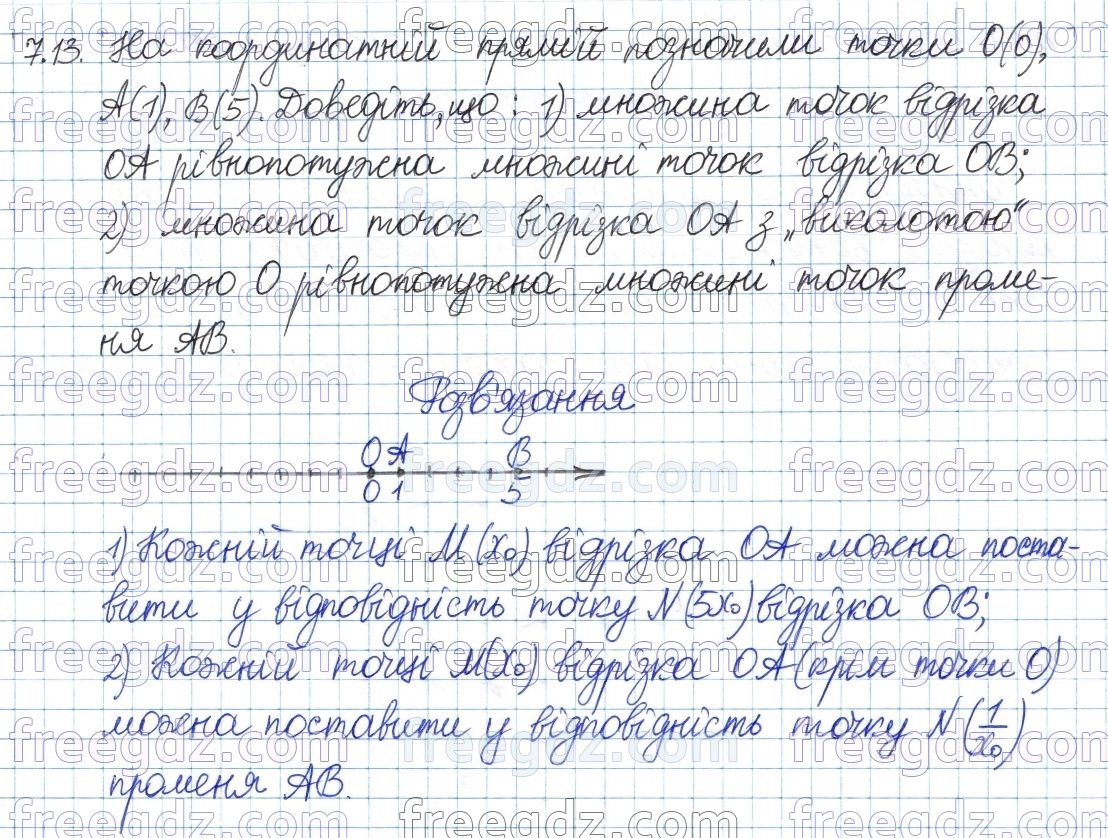 7.13. На координатній прямій позначили точки O(0),
A(1), B(5). Доведіть, що: 1) множина точок відрізка
OA рівнопотужна множині точок відрізка OB;
2) множина точок відрізка OA з „виколотою“
точкою O рівнопотужна множині точок проме-
ня AB.
Розв'язання
O A B
0 1 5
1) Кожній точці M(x₀) відрізка OA можна поста-
вити у відповідність точку N(5x₀) відрізка OB;
2) Кожній точці M(x₀) відрізка OA (крім точки O)
можна поставити у відповідність точку N(1/x₀)
променя AB.
freegdz.com